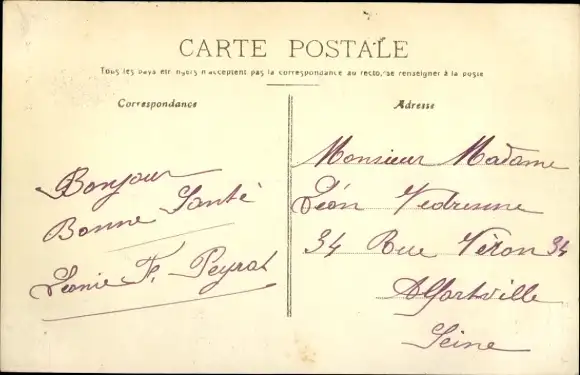 CARTE POSTALE
Tous les pays étrangers n'acceptent pas la correspondance au recto, se renseigner à la poste
Correspondance
Bonjour
Bonne Santé
Léonie F. Peyrat
Adresse
Monsieur Madame
Léon Vedrenne
34 Rue Véron 34
Alfortville
Seine